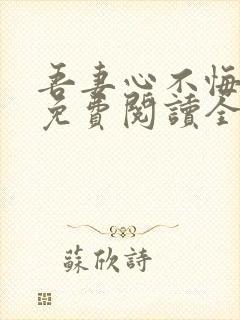 吾妻心不悔
免費閱讀全
蘇欣詩